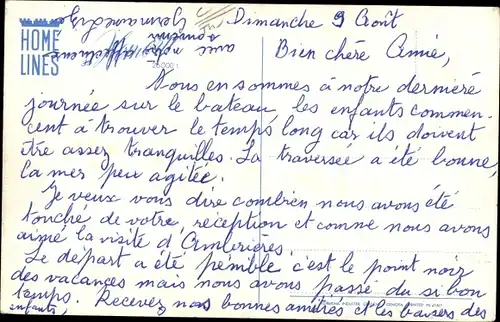 HOME
LINES
Dimanche 9 Août
Bien chère Amie,
Nous en sommes à notre dernière
journée sur le bateau les enfants commen-
cent à trouver le temps long car ils doivent
être assez tranquilles. La traversée a été bonne,
la mer peu agitée.
Je veux vous dire combien nous avons été
touché de votre réception et comme nous avons
aimé la visite d'Ambrières.
Le départ a été pénible c'est le point noir
des vacances mais nous avons passé du si bon
temps. Recevez nos bonnes amitiés et les baisers des
enfants,
avec notre
affectueux
souvenir